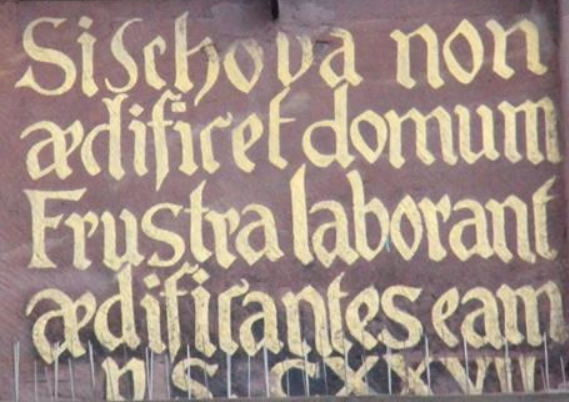 Si Jehova non
ædificet domum
Frustra laborant
ædificantes eam
PS. CXXVII